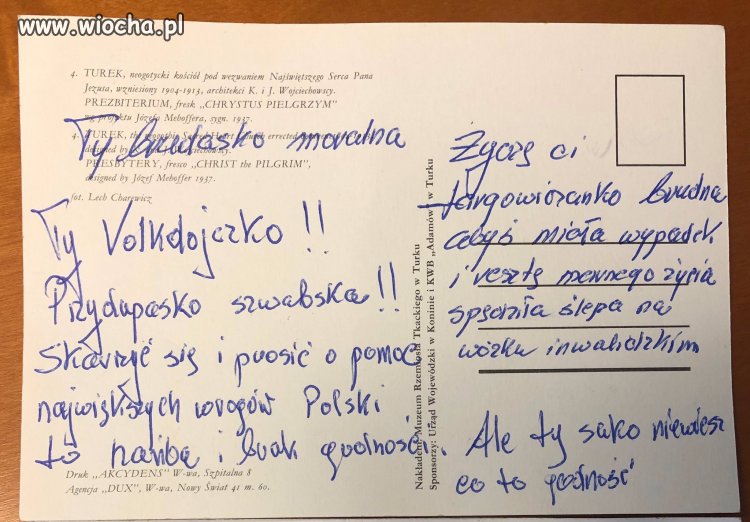 www.wiocha.pl
4. TUREK, neogotycki kościół pod wezwaniem Najświętszego Serca Pana
Jezusa, wzniesiony 1904-1913, architekci K. i J. Wojciechowscy.
PREZBITERIUM, fresk „CHRYSTUS PIELGRZYM"
wg projektu Józefa Mehoffera, sygn. 1937.
4. TUREK, the neogothic Sacred Heart errected
designed by
PRESBYTERY, fresco „CHRIST the PILGRIM",
designed by Józef Mehoffer 1937.
fot. Lech Charewicz
Ty brudasko moralna
Ty Volkdojczko !!
Przydupasko szwabska !!
Skarżyć się i prosić o pomoc
największych wrogów Polski
to hańba i brak godności
Druk „AKCYDENS" W-wa, Szpitalna 8
Agencja „DUX", W-wa, Nowy Świat 41 m. 60.
Nakładem Muzeum Rzemiosła Tkackiego w Turku
Sponsorzy: Urząd Wojewódzki w Koninie i KWB „Adamów" w Turku
Życzę ci
targowiczanko brudna
abyś miała wypadek
i resztę marnego życia
spędziła ślepa na
wózku inwalidzkim
Ale ty sako niewiesz
co to godność